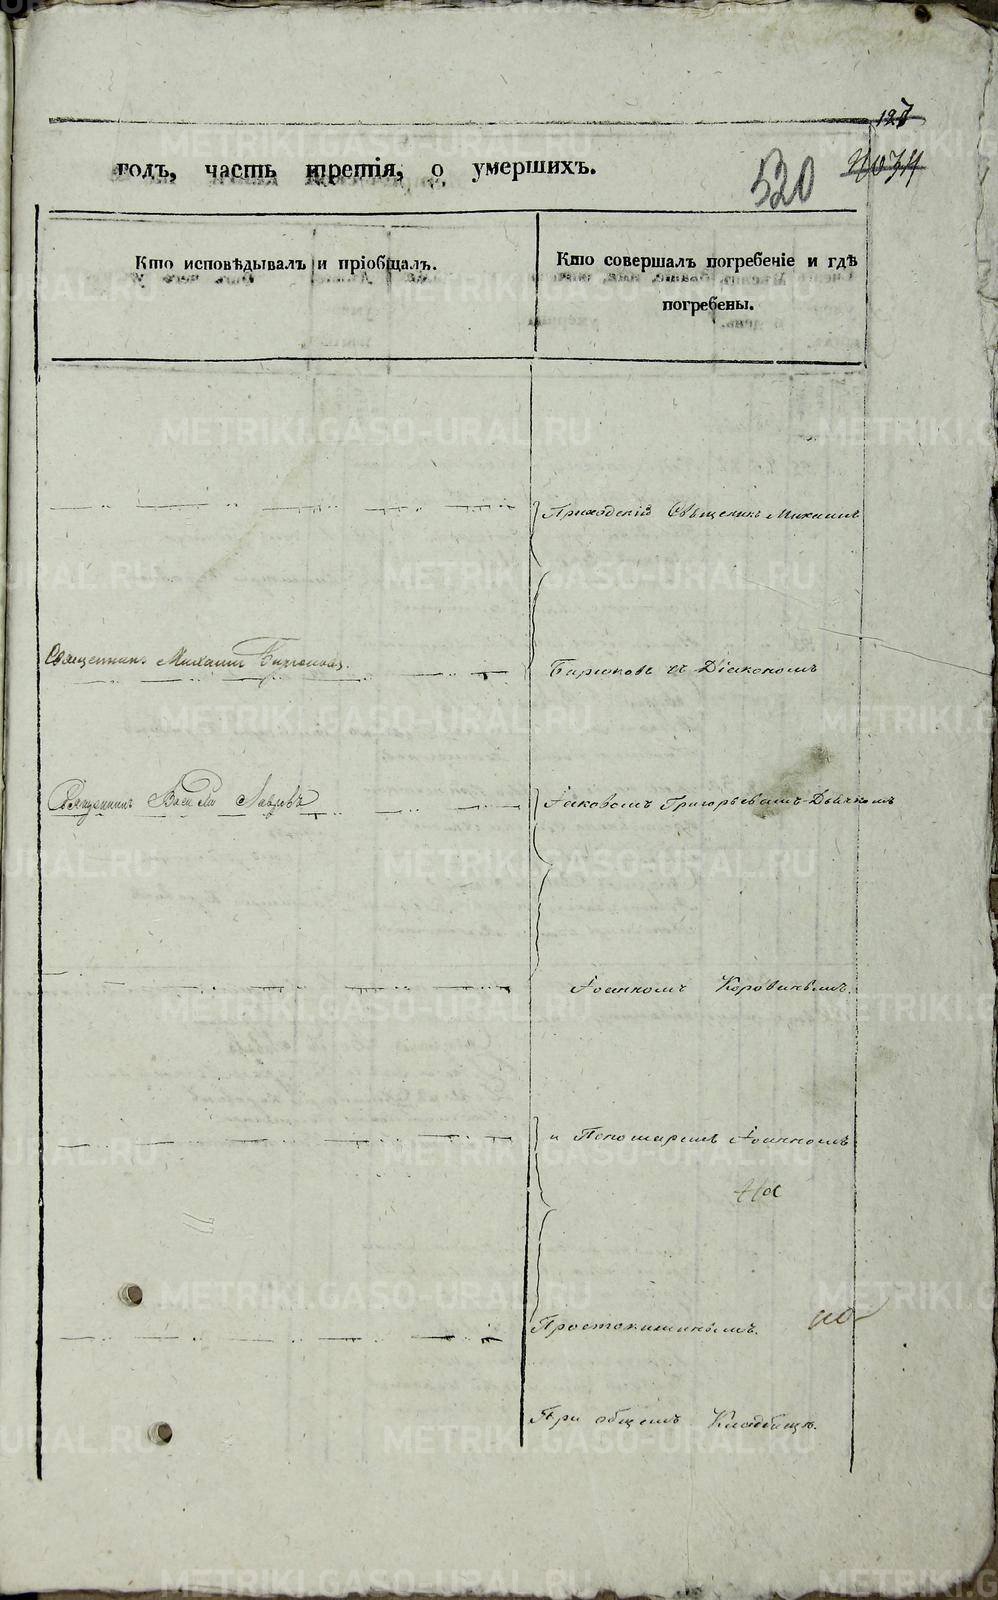 127
годъ, часть третія, о умершихъ.
520
Кто исповѣдывалъ и пріобщалъ.
Кто совершалъ погребеніе и гдѣ
погребены.
Приходскій Священикъ Михаилъ
Священникъ Михаилъ Бирюковъ.
Бирюковъ съ Діакономъ
Священникъ Василій
Іаковомъ Григорьевымъ Дьячкомъ
Іоанномъ Коровинымъ.
и Пономаремъ Іоанномъ
Простокишинымъ.
При общемъ Кладбищѣ.
METRIKI.GASO-URAL.RU